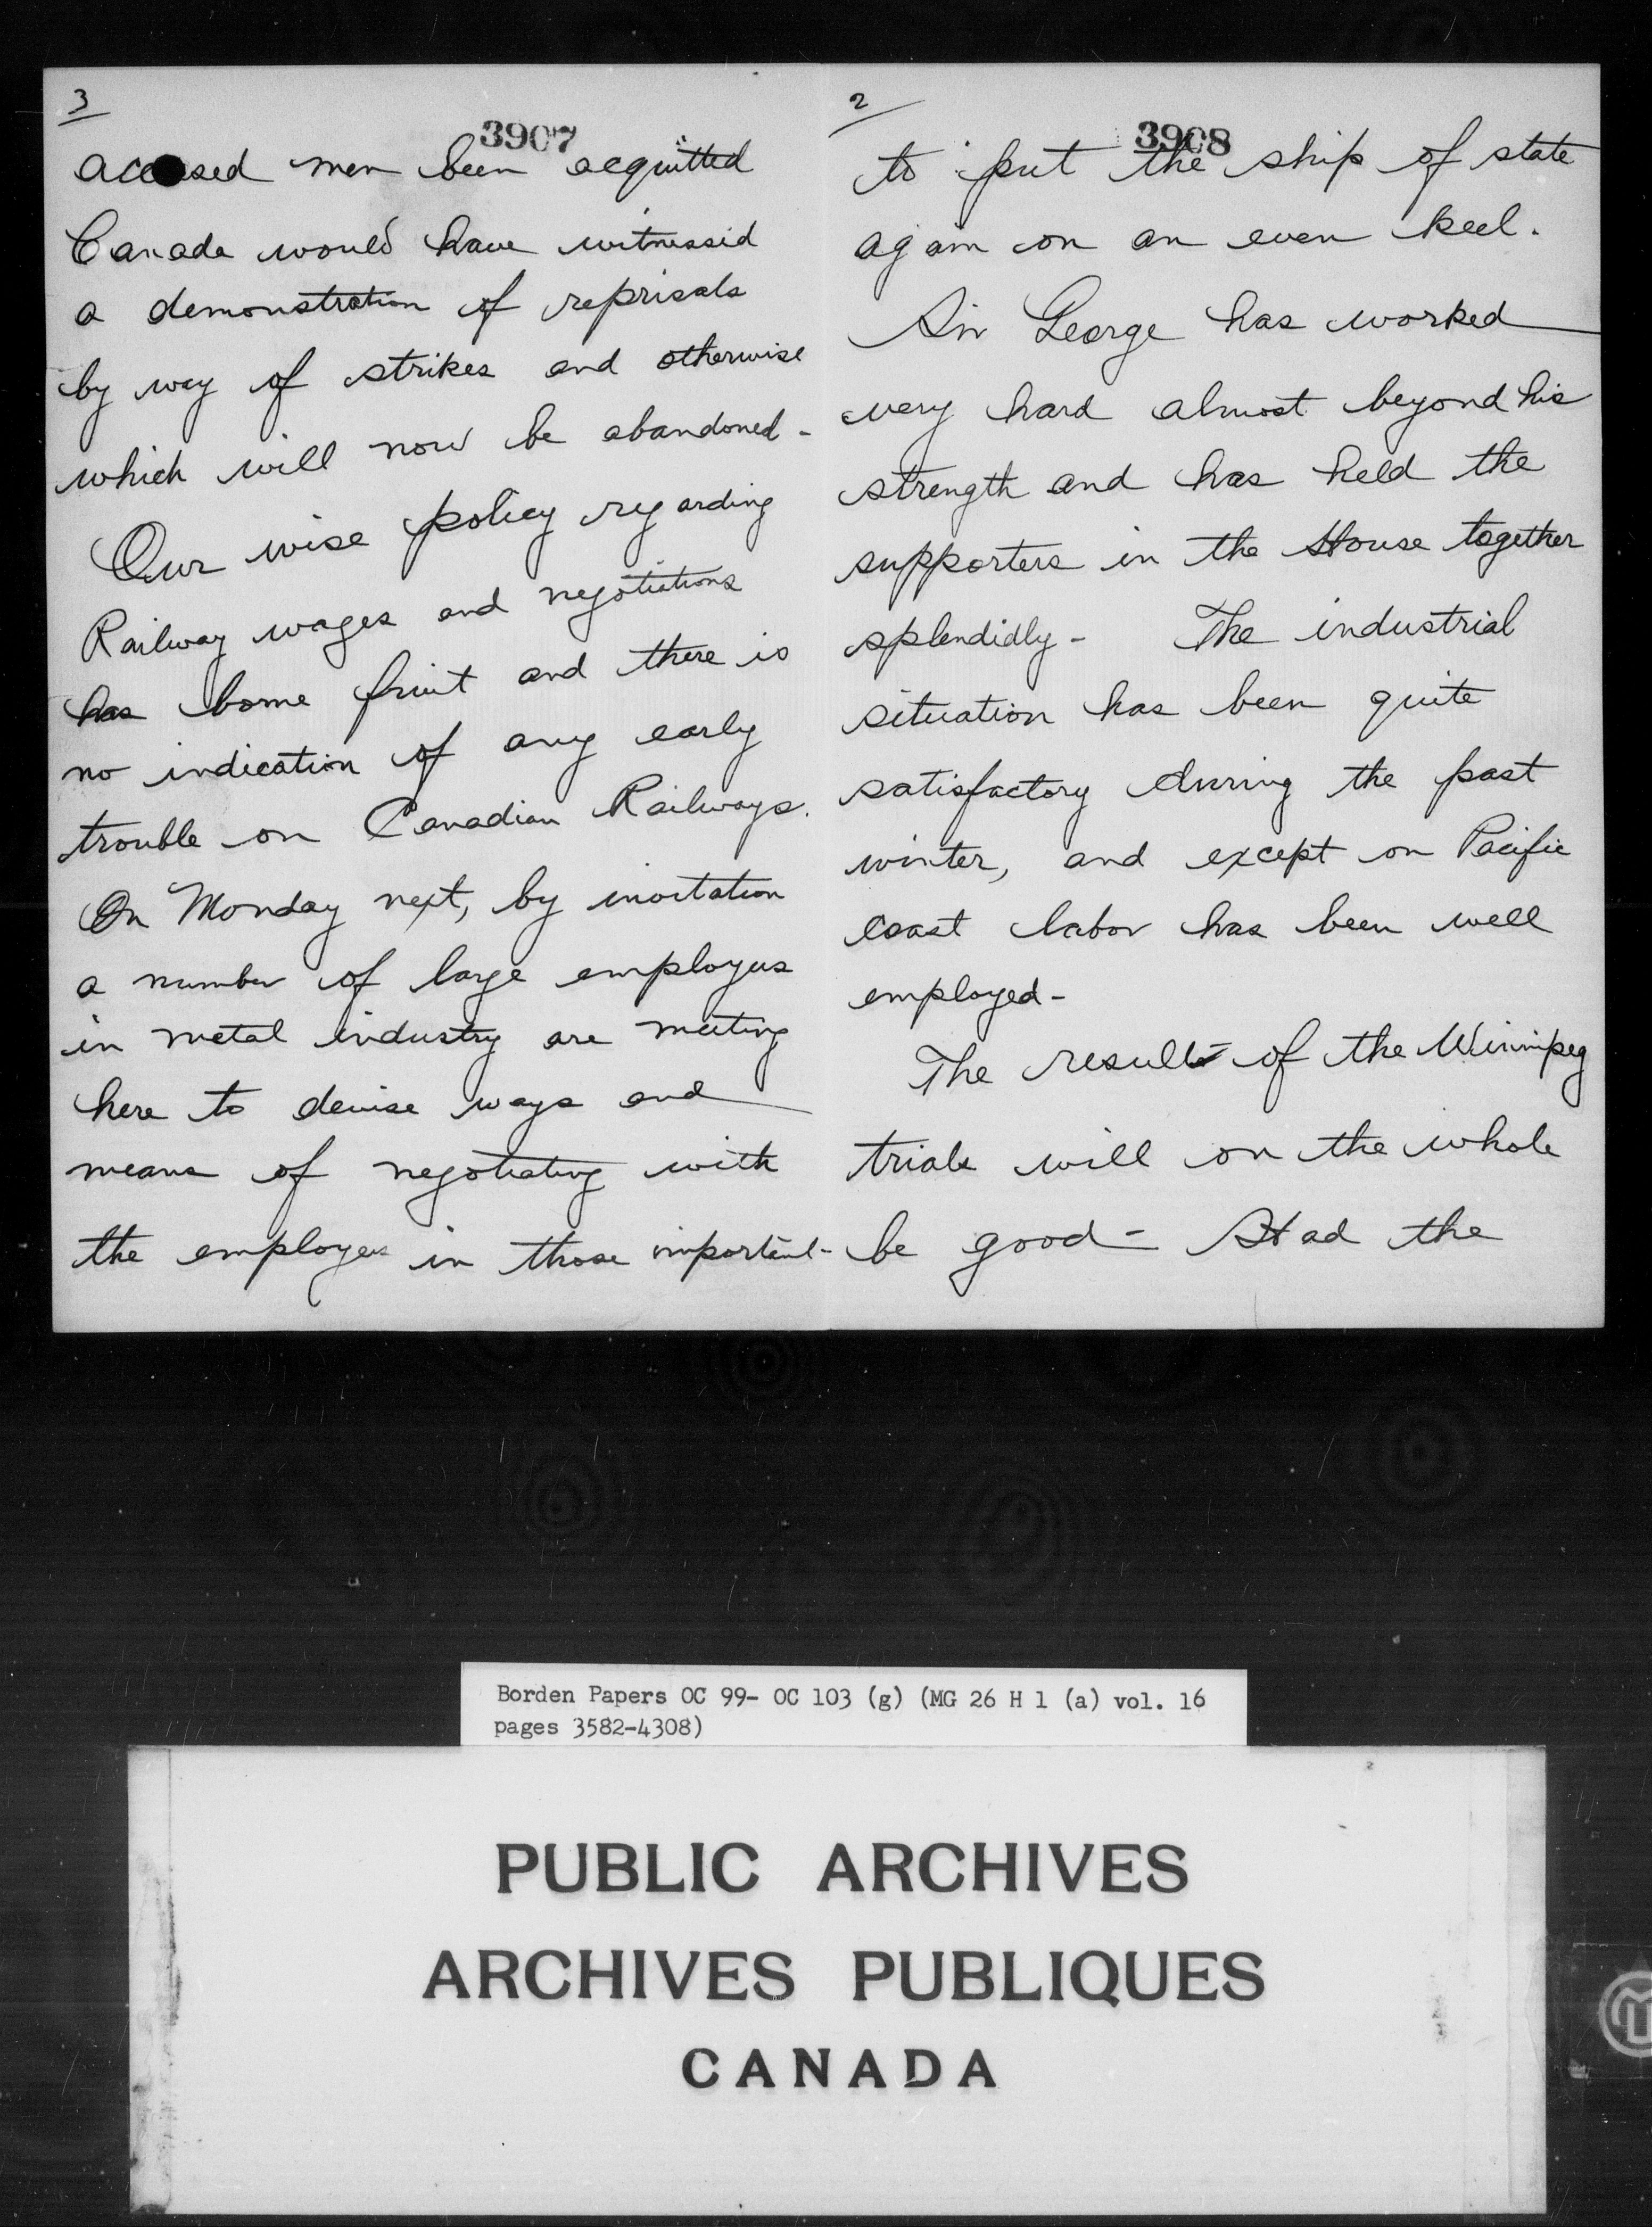 3
3907
accused men been acquitted
Canada would have witnessed
a demonstration of reprisals
by way of strikes and otherwise
which will now be abandoned -
Our wise policy regarding
Railway wages and negotiations
has borne fruit and there is
no indication of any early
trouble on Canadian Railways.
On Monday next, by invitation
a number of large employers
in metal industry are meeting
here to devise ways and
means of negotiating with
the employees in those important-
2
3908
to put the ship of state
again on an even keel.
Sir George has worked
very hard almost beyond his
strength and has held the
supporters in the House together
splendidly - The industrial
situation has been quite
satisfactory during the past
winter, and except on Pacific
coast labor has been well
employed -
The results of the Winnipeg
trials will on the whole
be good - Had the
Borden Papers OC 99- OC 103 (g) (MG 26 H 1 (a) vol. 16
pages 3582-4308)
PUBLIC ARCHIVES
ARCHIVES PUBLIQUES
CANADA